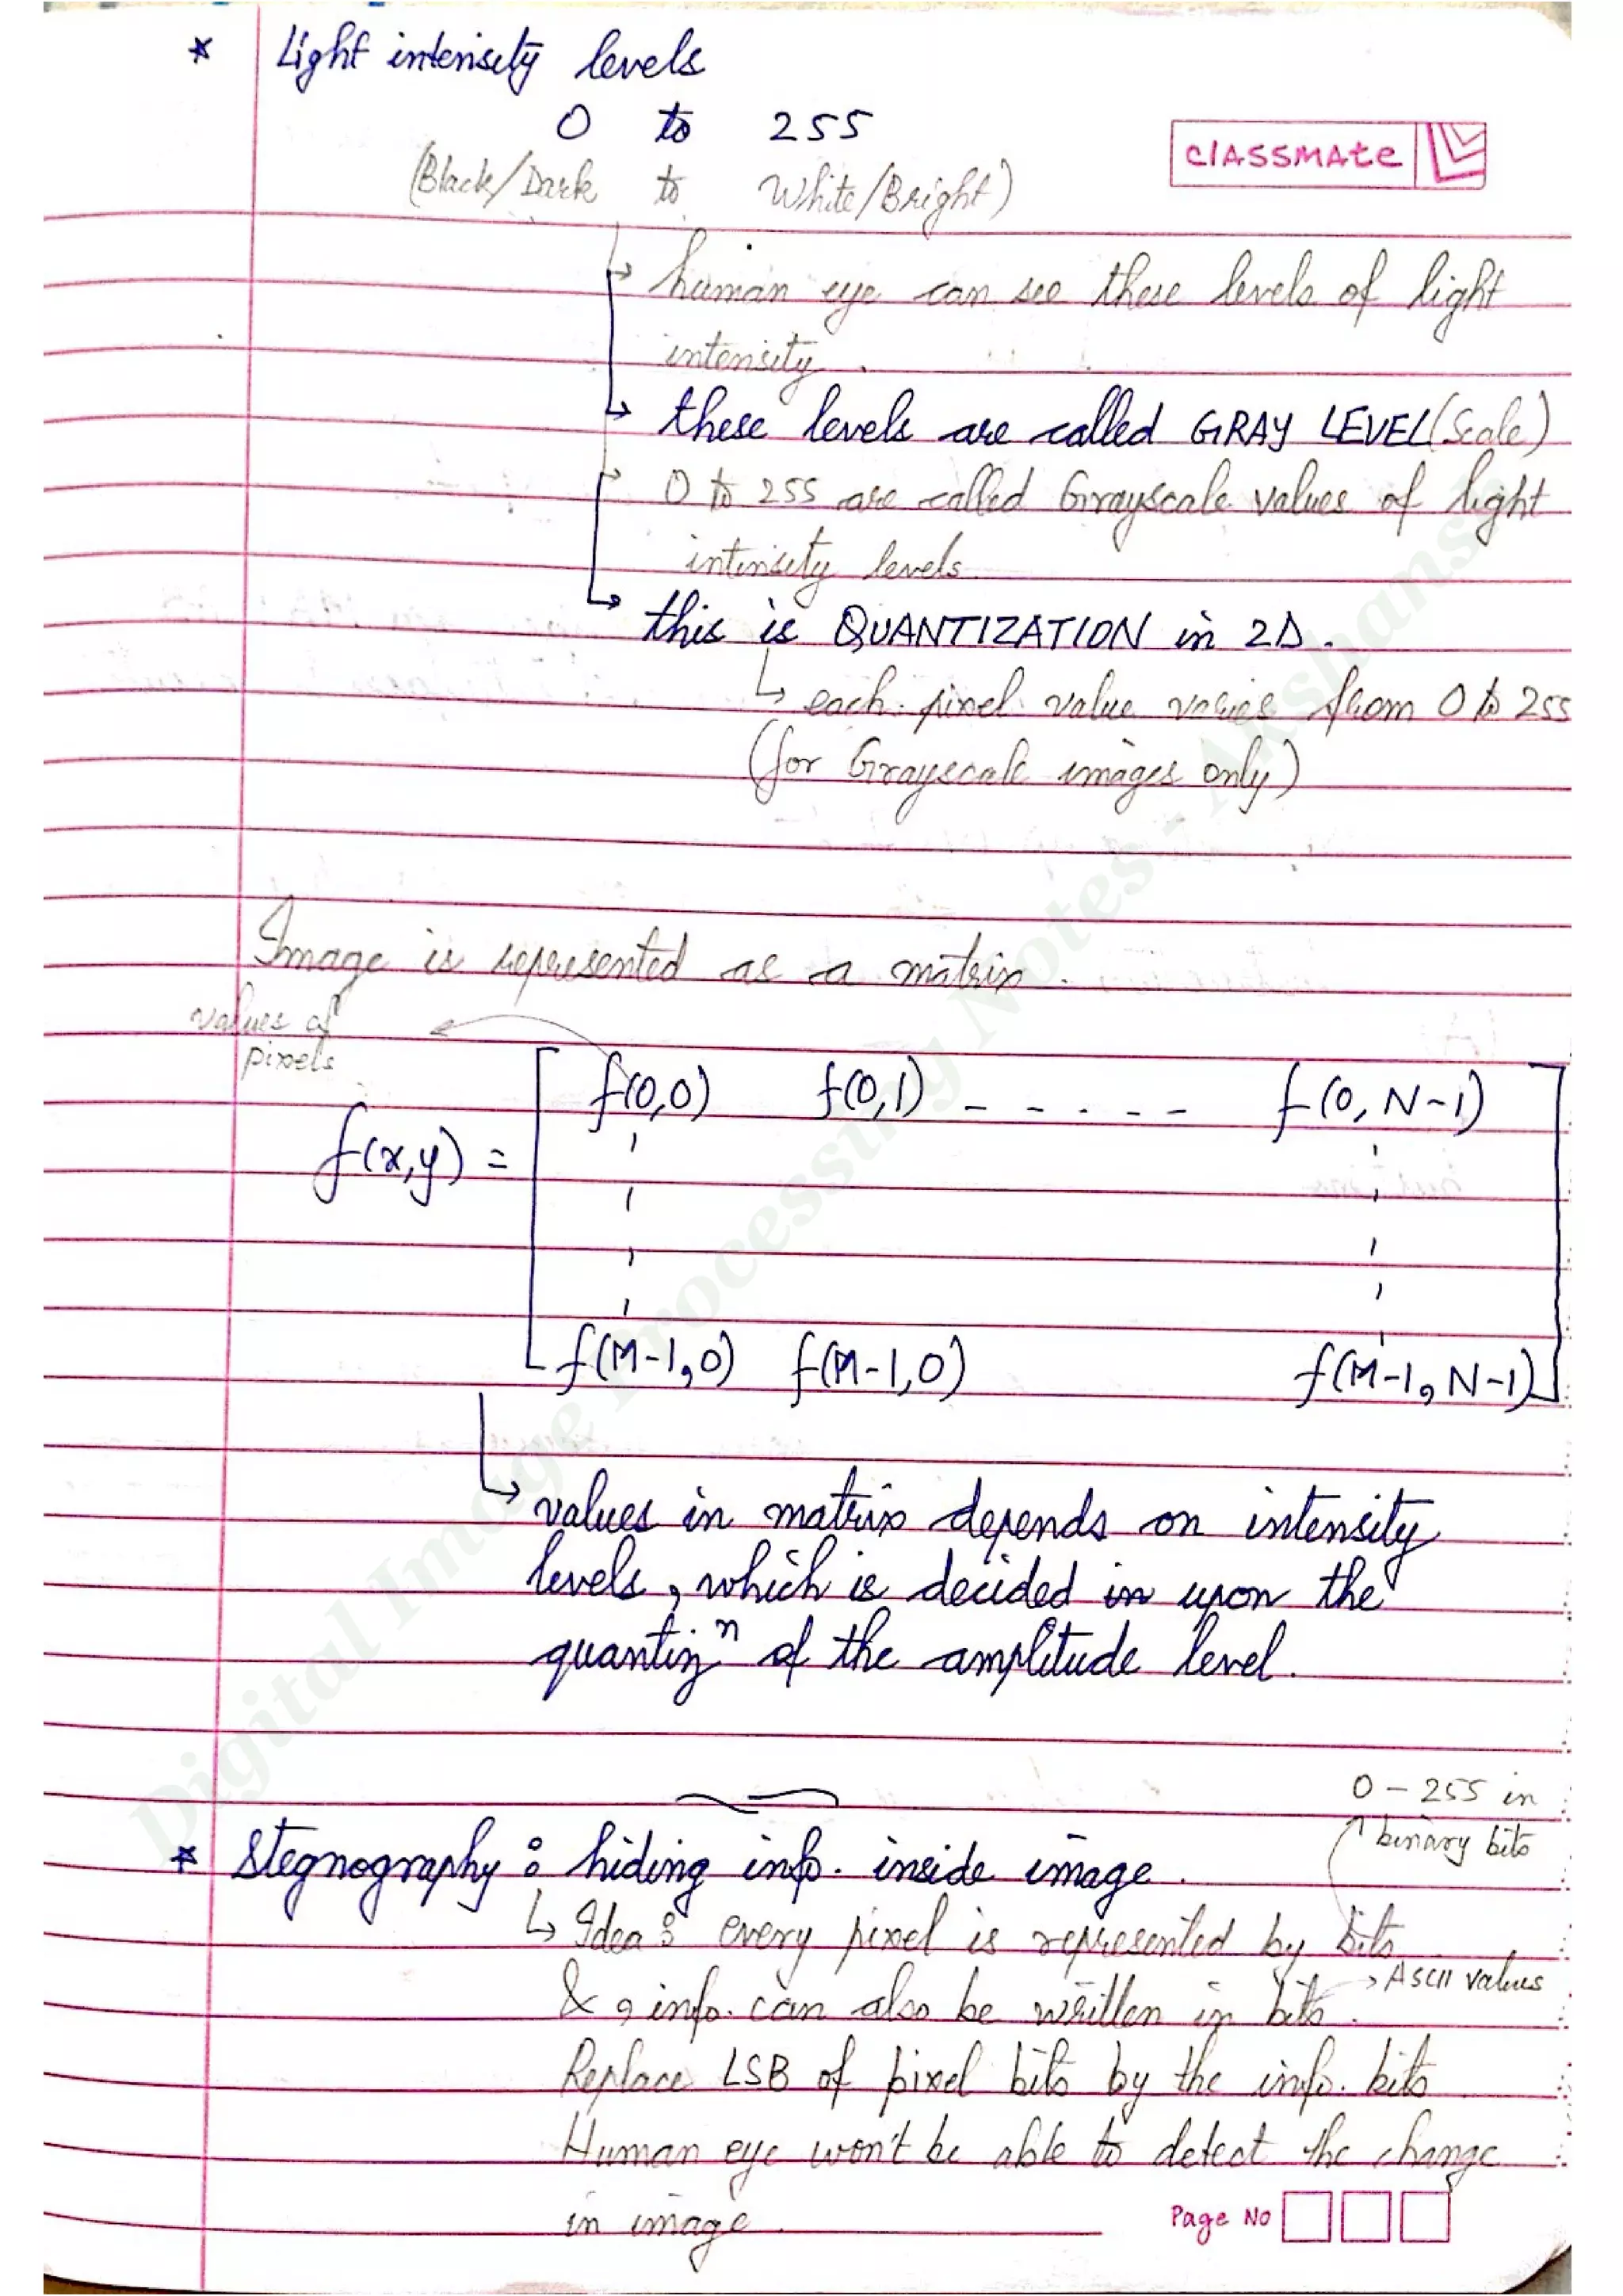 * Light intensity levels
0 to 255
classmate
(Black/Dark to White/Bright)
↳ human eye can see these levels of light
intensity.
↳ these levels are called GRAY LEVEL (Scale)
↳ 0 to 255 are called Grayscale values of light
intensity levels
↳ this is QUANTIZATION in 2D.
↳ each pixel value varies from 0 to 255
(for Grayscale images only)
Image is represented as a matrix.
values of
pixels
f(0,0) f(0,1) - - - - - f(0, N-1)
f(x,y) =
f(M-1,0) f(M-1,0) f(M-1, N-1)
↳ values in matrix depends on intensity
levels, which is decided in upon the
quantizⁿ of the amplitude level.
0 - 255 in
binary bits
* Stegnography : hiding info. inside image.
↳ Idea : every pixel is represented by bits
& , info. can also be written in bits. → ASCII values
Replace LSB of pixel bits by the info. bits
Human eye won't be able to detect the change
in image.
Page No
Digital Image Processing Notes - Akshansh